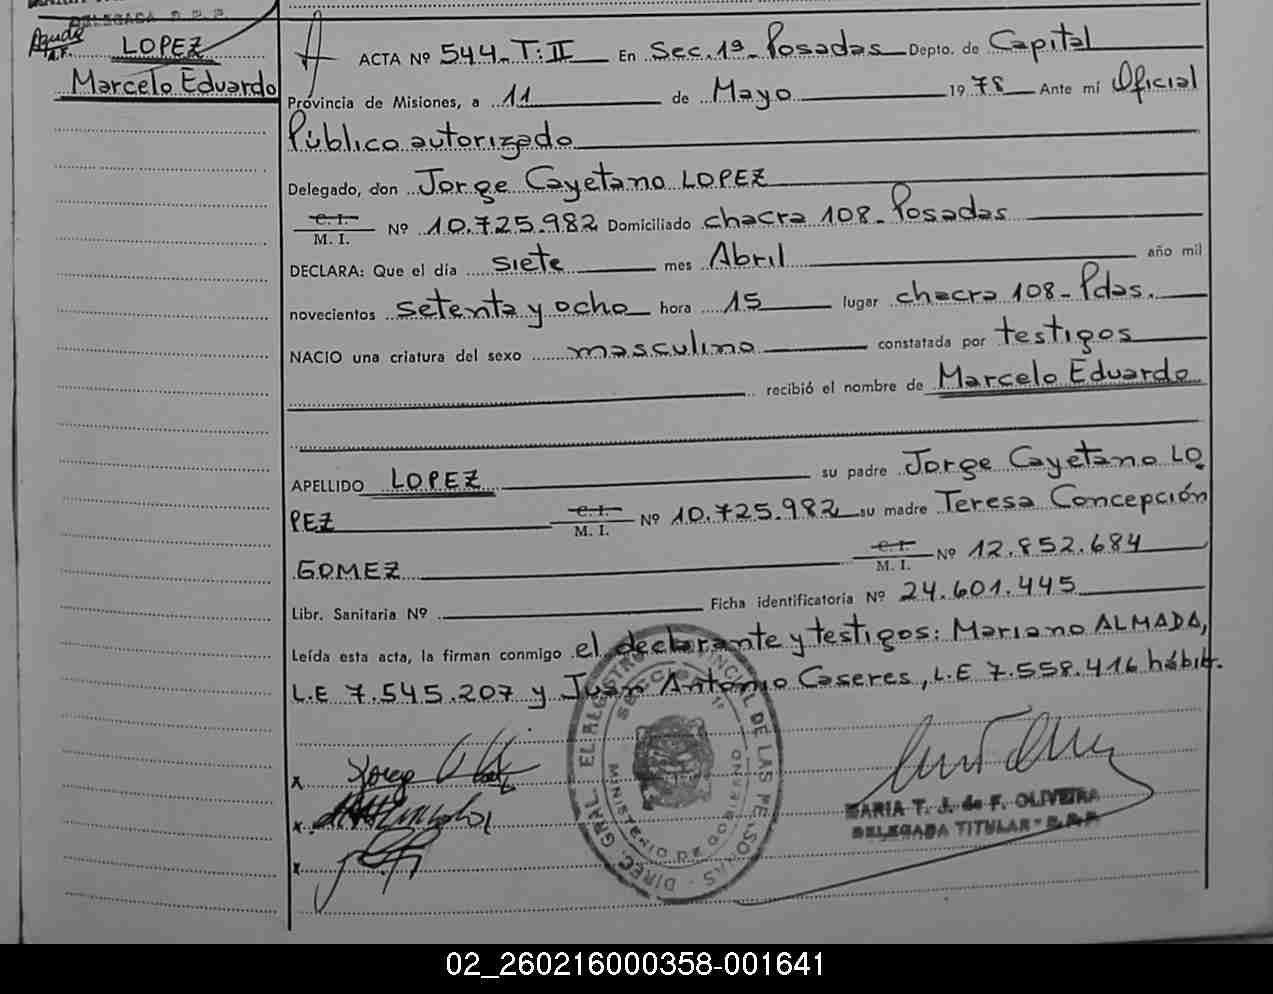 DELEGADA D. P. P.
LOPEZ
Marcelo Eduardo
ACTA Nº 544-T:II En Sec. 1ª Posadas Depto. de Capital
Provincia de Misiones, a 11 de Mayo 1978 Ante mí Oficial
Público autorizado
Delegado, don Jorge Cayetano LOPEZ
C. I.
M. I. Nº 10.725.982 Domiciliado chacra 108- Posadas
DECLARA: Que el día siete mes Abril año mil
novecientos setenta y ocho hora 15 lugar chacra 108- Pdas.
NACIO una criatura del sexo masculino constatada por testigos
recibió el nombre de Marcelo Eduardo
APELLIDO LOPEZ su padre Jorge Cayetano LO
PEZ C. I. M. I. Nº 10.725.982 su madre Teresa Concepción
GOMEZ C. I. M. I. Nº 12.852.684
Libr. Sanitaria Nº Ficha identificatoria Nº 24.601.445
Leída esta acta, la firman conmigo el declarante y testigos: Mariano ALMADA,
L.E 7.545.207 y Juan Antonio Caseres, L.E 7.558.416 hábil.
DIREC. GRAL. EL REGISTRO PROVINCIAL DE LAS PERSONAS
SECCION 1ª
MINISTERIO DE GOBIERNO
x Jorge
x
x
MARIA T. J. de F. OLIVEIRA
DELEGADA TITULAR - D.P.P.
02_260216000358-001641